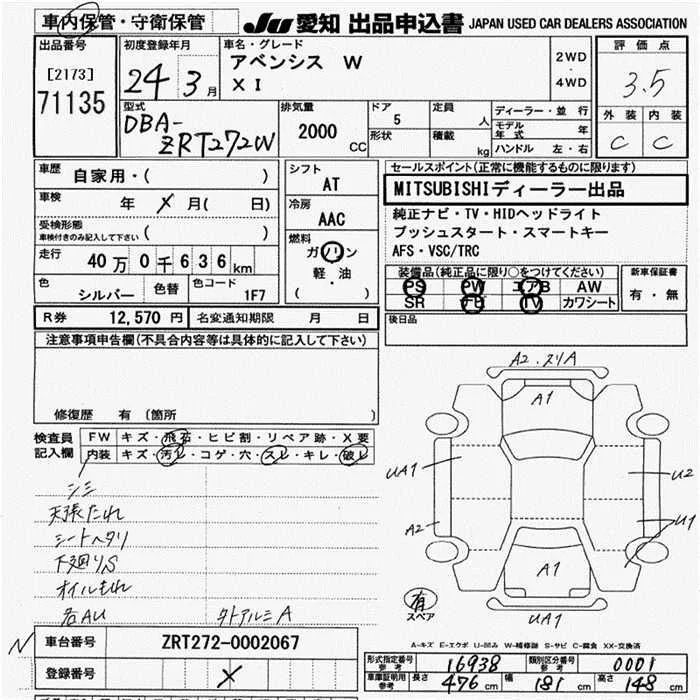 車内保管・守衛保管 JU 愛知 出品申込書 JAPAN USED CAR DEALERS ASSOCIATION
出品番号 初度登録年月 車名・グレード 評価点
[2173] アベンシス W 2WD
71135 24 3月 XI 4WD 3.5
型式 排気量 ドア 定員 ディーラー・並 行 外装 内装
DBA-ZRT272W 2000 CC 5 人 モデル年式 年 C C
形状 積載 kg ハンドル 左・右
車歴 自家用・( ) シフト セールスポイント(正常に機能するものに限ります)
AT MITSUBISHIディーラー出品
車検 年 月( 日) 冷房 純正ナビ・TV・HIDヘッドライト
AAC プッシュスタート・スマートキー
受検形態 ( ) AFS・VSC/TRC
車検付きのみ記入して下さい 燃料
走行 40万0千636km ガソリン 装備品(純正品に限り○をつけてください) 新車保証書
軽・油 PS PW エアB AW 有・無
色 シルバー 色替 色コード 1F7 ( ) SR ナビ TV カワシート
R券 12,570円 名変通知期限 月 日 後日品
注意事項申告欄(不具合内容等は具体的に記入して下さい)
修復歴 有 (箇所 )
検査員 FW キズ・飛石・ヒビ割・リペア跡・X要
記入欄 内装 キズ・汚レ・コゲ・穴・スレ・キレ・破レ
A2.スリA
A1
UA1 U2
A2 U1
A1
UA1
シミ
天張たれ
シートヘタリ
下廻りS
オイルもれ
各AU タトアルミA
有
スペア
A-キズ E-エクボ U-凹み W-補修跡 S-サビ C-腐食 XX-交換済
N 車台番号 ZRT272-0002067
登録番号 X
形式指定番号 参考 16938 類別区分番号 参考 0001
車庫証明用 参考 長さ 476 cm 幅 181 cm 高さ 148 cm